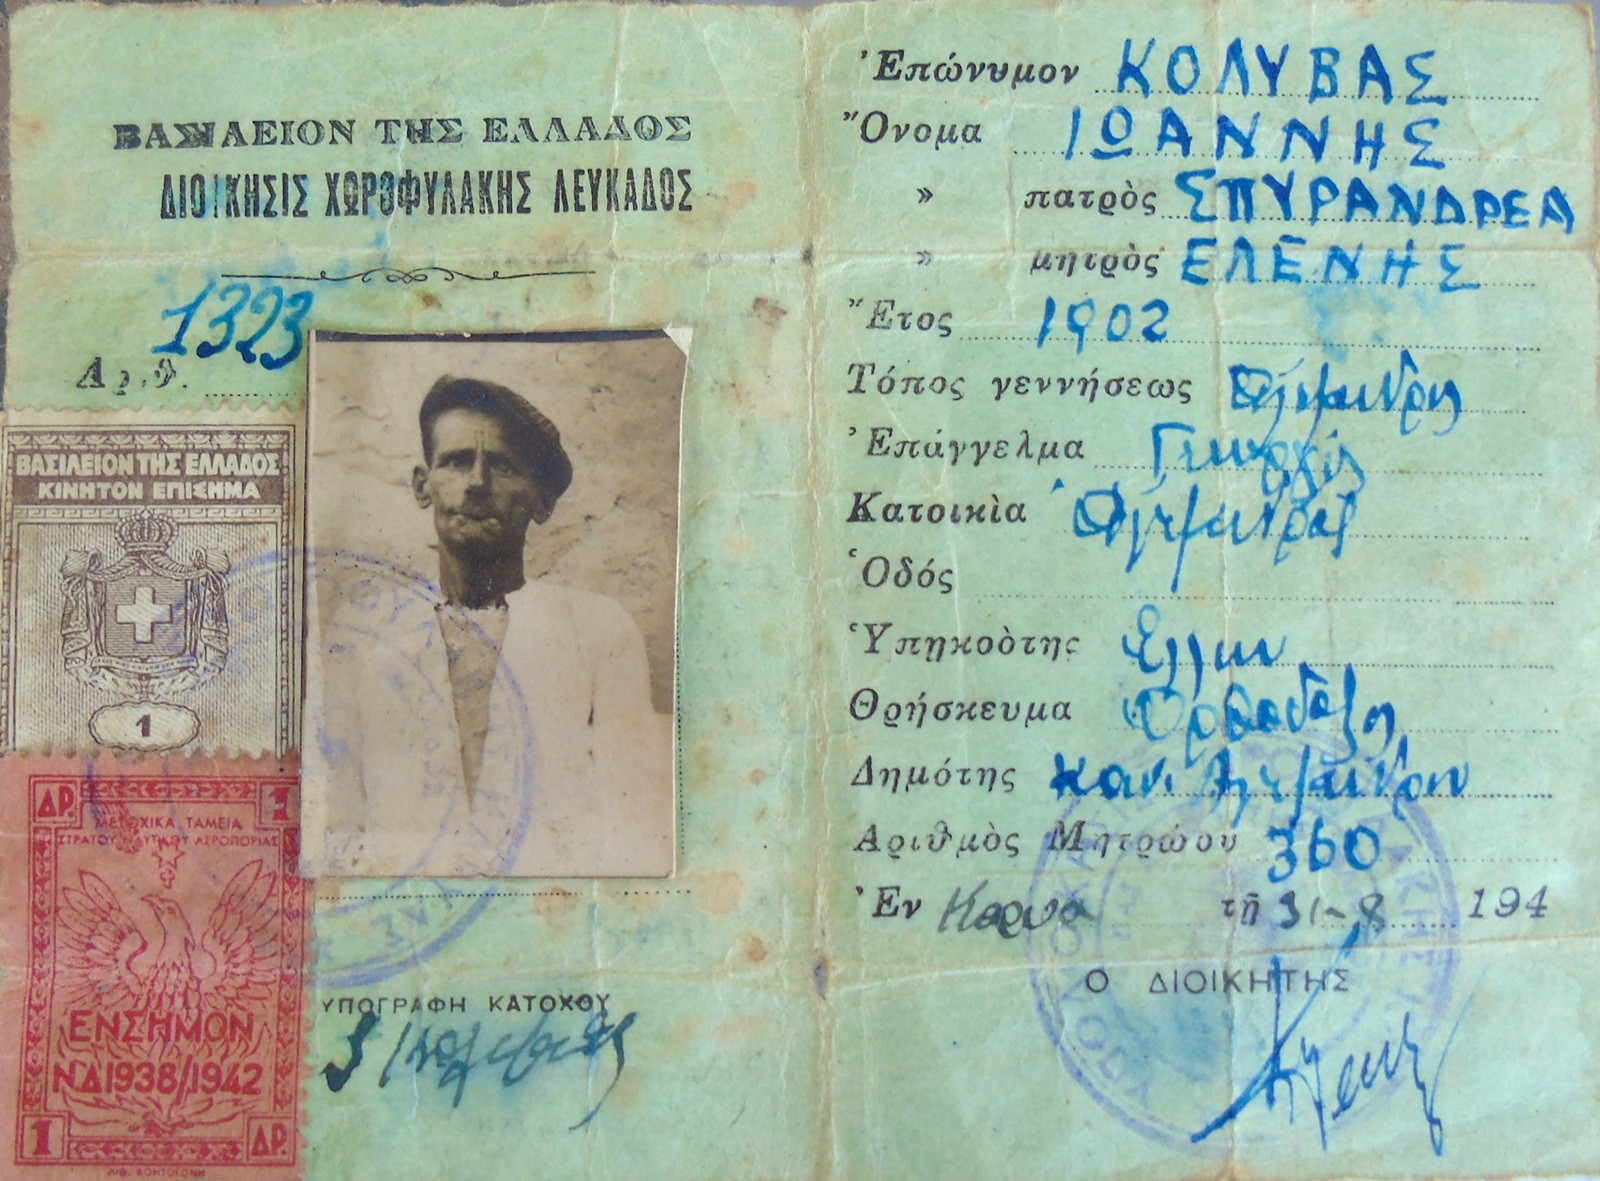 ΒΑΣΙΛΕΙΟΝ ΤΗΣ ΕΛΛΑΔΟΣ
ΔΙΟΙΚΗΣΙΣ ΧΩΡΟΦΥΛΑΚΗΣ ΛΕΥΚΑΔΟΣ
Αριθ. 1323
ΒΑΣΙΛΕΙΟΝ ΤΗΣ ΕΛΛΑΔΟΣ
ΚΙΝΗΤΟΝ ΕΠΙΣΗΜΑ
1
ΔΡ. 1
ΜΕΤΟΧΙΚΑ ΤΑΜΕΙΑ
ΣΤΡΑΤΟΥ ΝΑΥΤΙΚΟΥ ΑΕΡΟΠΟΡΙΑΣ
ΕΝΣΗΜΟΝ
ΝΔ 1938/1942
1 ΔΡ.
ΥΠΟΓΡΑΦΗ ΚΑΤΟΧΟΥ
Ἐπώνυμον ΚΟΛΥΒΑΣ
Ὄνομα ΙΩΑΝΝΗΣ
» πατρὸς ΣΠΥΡΑΝΔΡΕΑ
» μητρὸς ΕΛΕΝΗΣ
Ἔτος 1902
Τόπος γεννήσεως
Ἐπάγγελμα Γεωργός
Κατοικὶα
Ὁδός
Ὑπηκοὸτης Ελλην
Θρήσκευμα Ορθοδοξος
Δημότης
Αριθμὸς Μητρώου 360
Ἐν Καρυα τῇ 31-8 194
Ο ΔΙΟΙΚΗΤΗΣ